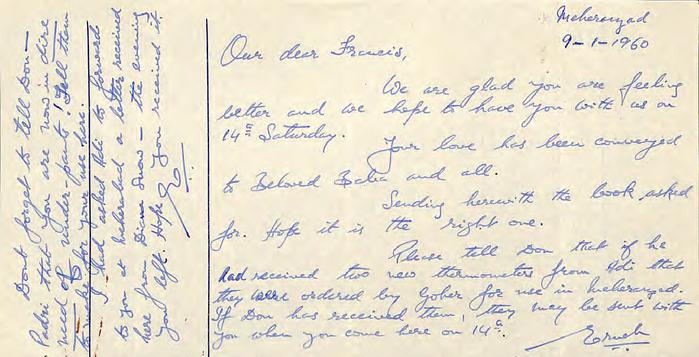 Meherazad
9-1-1960
Our dear Francis,
We are glad you are feeling
better and we hope to have you with us on
14th Saturday.
Your love has been conveyed
to Beloved Baba and all.
Sending herewith the book asked
for. Hope it is the right one.
Please tell Don that if he
had received two new thermometers from Adi that
they were ordered by Goher for use in Meherazad.
If Don has received them, they may be sent with
you when you come here on 14th.
Eruch
Don't forget to tell Don—
Padri that you are now in dire
need of under-pants! Tell them
to make for your use here.
I had asked Adi to forward
to you at Meherabad a letter received
here from Diana Snow — the evening
you left. Hope you received it.
E